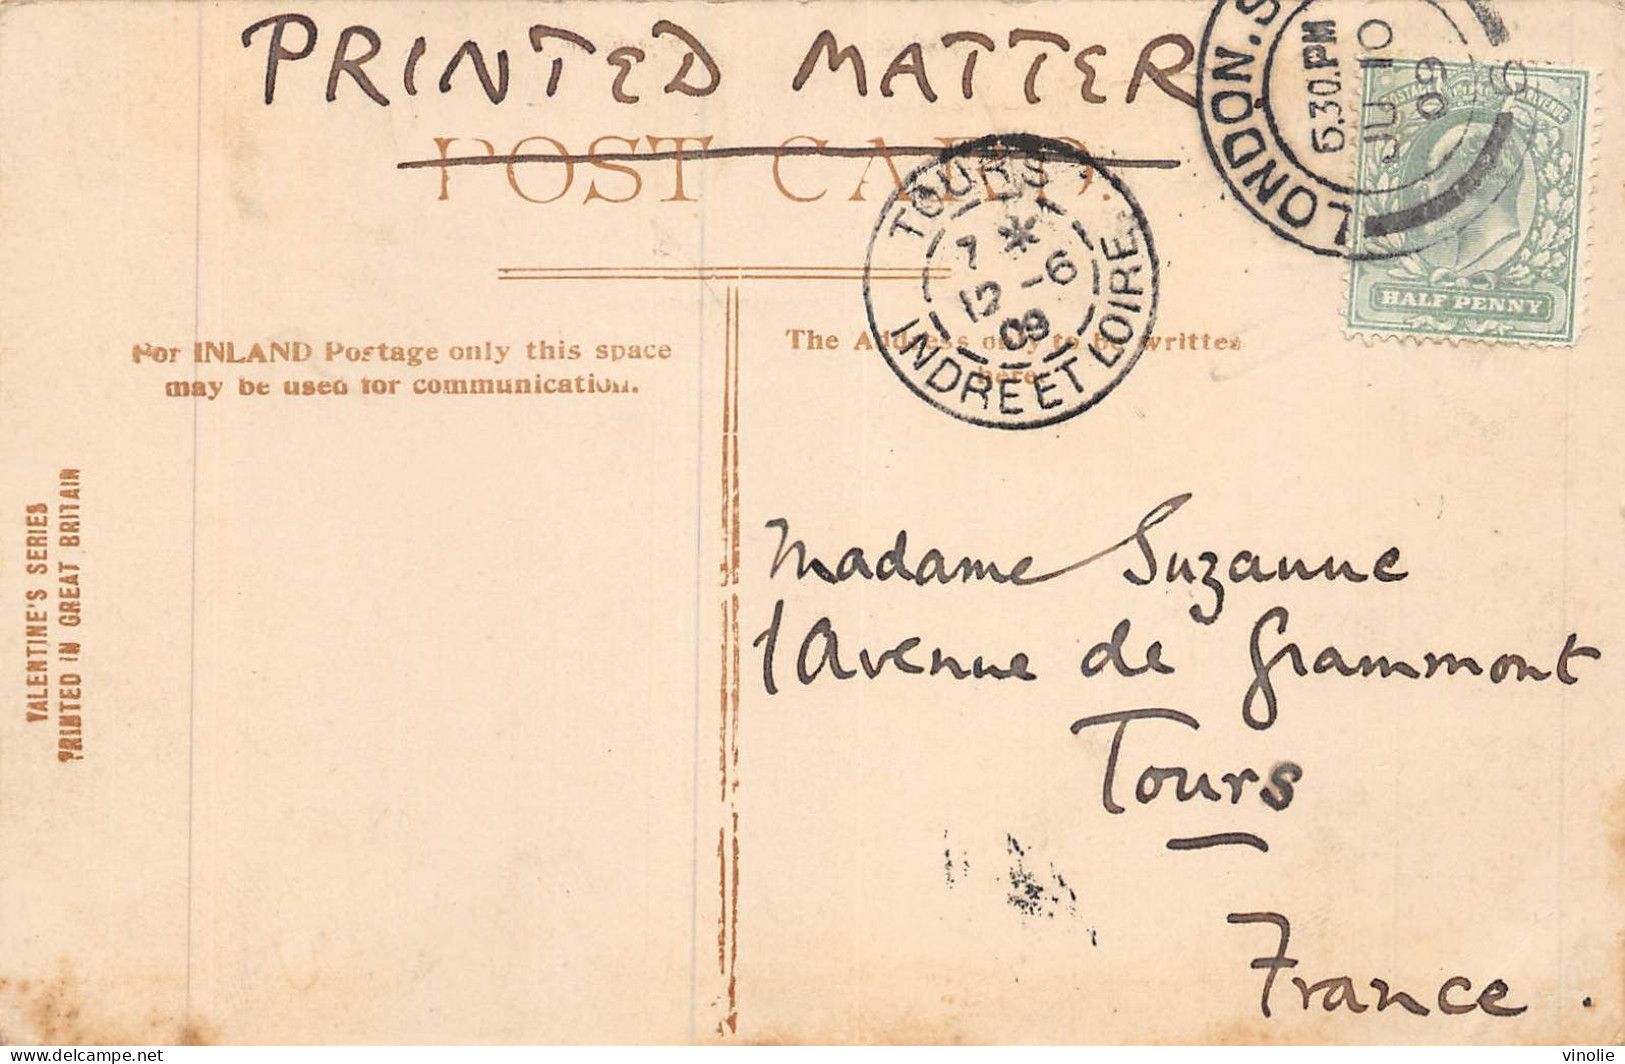 PRINTED MATTER
POST CARD.
For INLAND Postage only this space
may be used for communication.
The Address only to be written
here
VALENTINE'S SERIES
PRINTED IN GREAT BRITAIN
LONDON. S
6.30.PM
JU 10
09
HALF PENNY
TOURS
7 *
12 -6
09
INDRE ET LOIRE
Madame Suzanne
1 Avenue de Grammont
Tours
France.
delcampe.net
vinolie